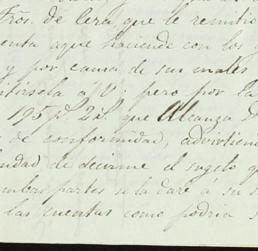 Fros. de Cera que le remitio
enta aque haciende con los g
y por causa de sus males
ntirsela a V: pero por la
195 p 2 d. que Alcanza D
s de conformidad, advirtiend
ndad de decirme el sugeto q
mbas partes se la dare a su s
las cuentas como podria s